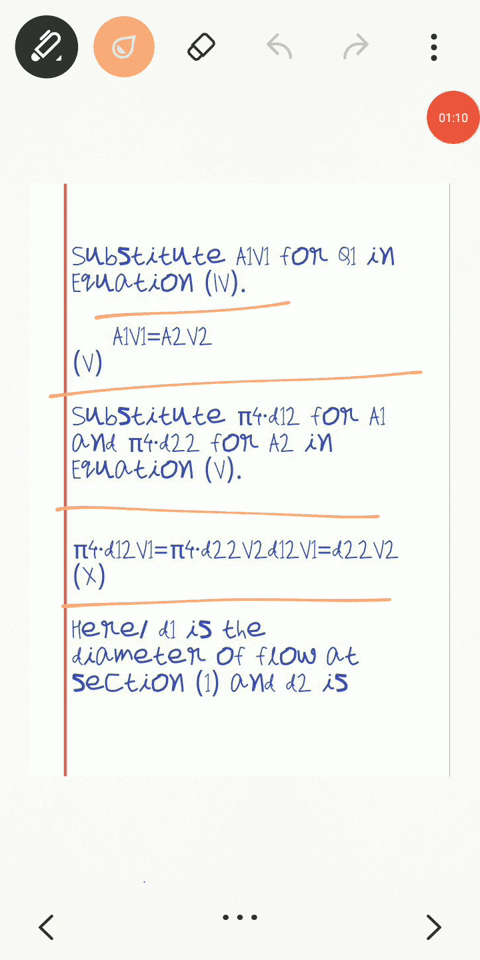 01:10
Substitute A1V1 for Q1 in
Equation (IV).
A1V1=A2V2
(V)
Substitute π4·d12 for A1
and π4·d22 for A2 in
Equation (V).
π4·d12V1=π4·d22V2d12V1=d22V2
(X)
Here/ d1 is the
diameter of flow at
section (1) and d2 is